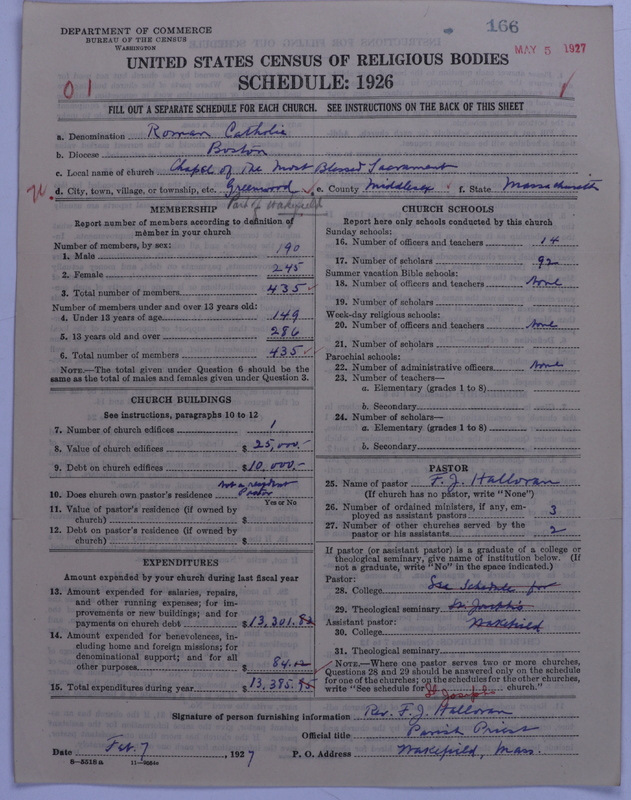 DEPARTMENT OF COMMERCE
BUREAU OF THE CENSUS
WASHINGTON
166
MAY 5 1927
UNITED STATES CENSUS OF RELIGIOUS BODIES
SCHEDULE: 1926
01
FILL OUT A SEPARATE SCHEDULE FOR EACH CHURCH. SEE INSTRUCTIONS ON THE BACK OF THIS SHEET
a. Denomination Roman Catholic
b. Diocese Boston
c. Local name of church Chapel of The Most Blessed Sacrament
d. City, town, village, or township, etc. Greenwood e. County Middlesex f. State Massachusetts
Part of Wakefield
MEMBERSHIP
Report number of members according to definition of member in your church
Number of members, by sex:
1. Male 190
2. Female 245
3. Total number of members 435
Number of members under and over 13 years old:
4. Under 13 years of age 149
5. 13 years old and over 286
6. Total number of members 435
NOTE.—The total given under Question 6 should be the same as the total of males and females given under Question 3.
CHURCH BUILDINGS
See instructions, paragraphs 10 to 12
7. Number of church edifices 1
8. Value of church edifices $ 25,000.-
9. Debt on church edifices $ 10,000.-
not a resident
10. Does church own pastor's residence Pastor
Yes or No
11. Value of pastor's residence (if owned by church) $
12. Debt on pastor's residence (if owned by church) $
EXPENDITURES
Amount expended by your church during last fiscal year
13. Amount expended for salaries, repairs, and other running expenses; for improvements or new buildings; and for payments on church debt $ 13,301.
14. Amount expended for benevolences, including home and foreign missions; for denominational support; and for all other purposes $ 84.
15. Total expenditures during year $ 13,385.
CHURCH SCHOOLS
Report here only schools conducted by this church
Sunday schools:
16. Number of officers and teachers 14
17. Number of scholars 92
Summer vacation Bible schools:
18. Number of officers and teachers None
19. Number of scholars
Week-day religious schools:
20. Number of officers and teachers None
21. Number of scholars
Parochial schools:
22. Number of administrative officers None
23. Number of teachers—
a. Elementary (grades 1 to 8)
b. Secondary
24. Number of scholars—
a. Elementary (grades 1 to 8)
b. Secondary
PASTOR
25. Name of pastor F. J. Halloran
(If church has no pastor, write "None")
26. Number of ordained ministers, if any, employed as assistant pastors 3
27. Number of other churches served by the pastor or his assistants 2
If pastor (or assistant pastor) is a graduate of a college or theological seminary, give name of institution below. (If not a graduate, write "No" in the space indicated.)
Pastor:
28. College See Schedule for
29. Theological seminary St. Joseph's
Assistant pastor: Wakefield
30. College
31. Theological seminary
NOTE.—Where one pastor serves two or more churches, Questions 28 and 29 should be answered only on the schedule for one of the churches; on the schedules for the other churches, write "See schedule for St Joseph's church."
Signature of person furnishing information Rev. F. J. Halloran
Official title Parish Priest
Date Feb. 7, 1927 P. O. Address Wakefield, Mass.
8—5518 a